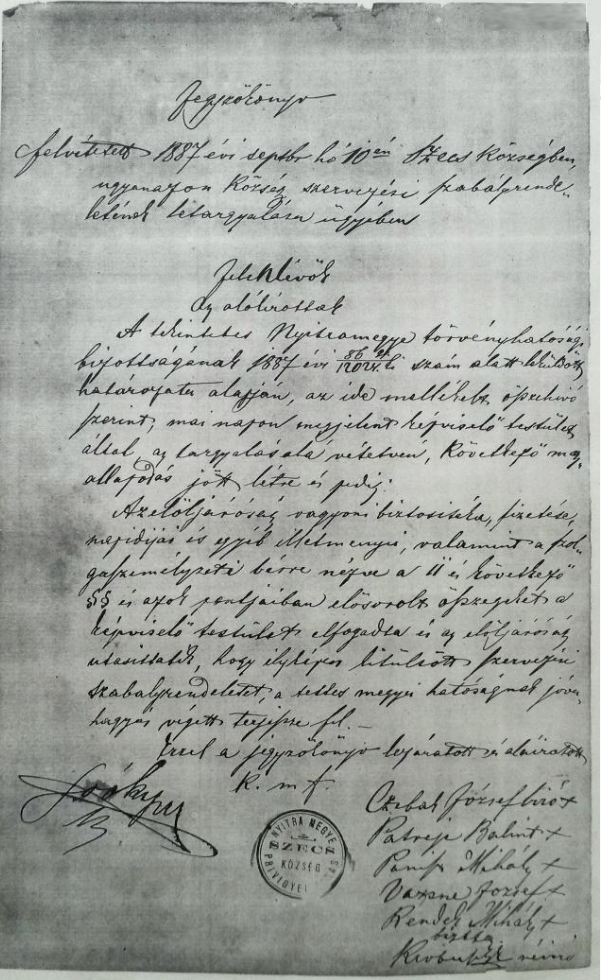 Jegyzőkönyv
felvétetett 1887 évi septbr hó 10én Szecs Községben,
ugyanazon Község szervezési szabályrende-
letének létárgyalása ügyében
Jelenlévők
az alólirottak
A tekintetes Nyitramegye törvényhatósági
bizottságának 1887 évi szám alatt
határozata alapján, az ide mellékelt
szerint, mai napon megjelent képviselő testület
által, az tárgyalás alá vétetvén, következő meg-
állapodás jött létre és pedig:
Az elöljáróság vagyoni biztositéka, fizetése,
napidijai és egyéb illetményei, valamint a szol-
gaszemélyzeti bérre nézve a 11 és következő
§§ és azok pontjaiban elősorolt összegeket a
képviselő testület elfogadta és az elöljáróság
utasittatik, hogy ilyképen szervezési
szabályrendeletet, a tettes megyei hatóságnak jóvá-
hagyás végett terjessze fel.-
Ezzel a jegyzőkönyv bezáratott és aláiratott
K. m. f.
József biró x
Bálint x
Mihály x
József x
Mihály x
NYITRA MEGYE
SZECS
KÖZSÉG
PRIVIGYEI